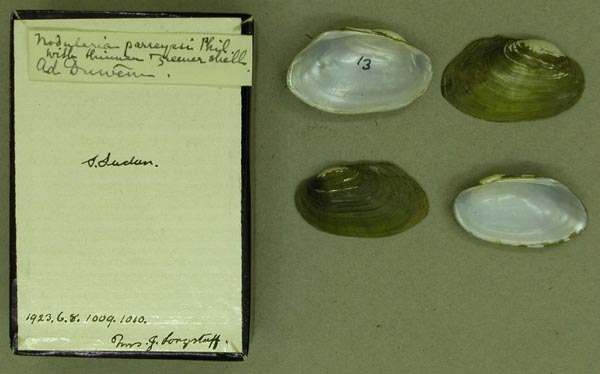 Nodularia parreyssi Phil
with thinner greener shell
Ad Duwêm.
S. Sudan.
1923.6.8. 1009-1010.
Mrs. J. Longstaff.
13